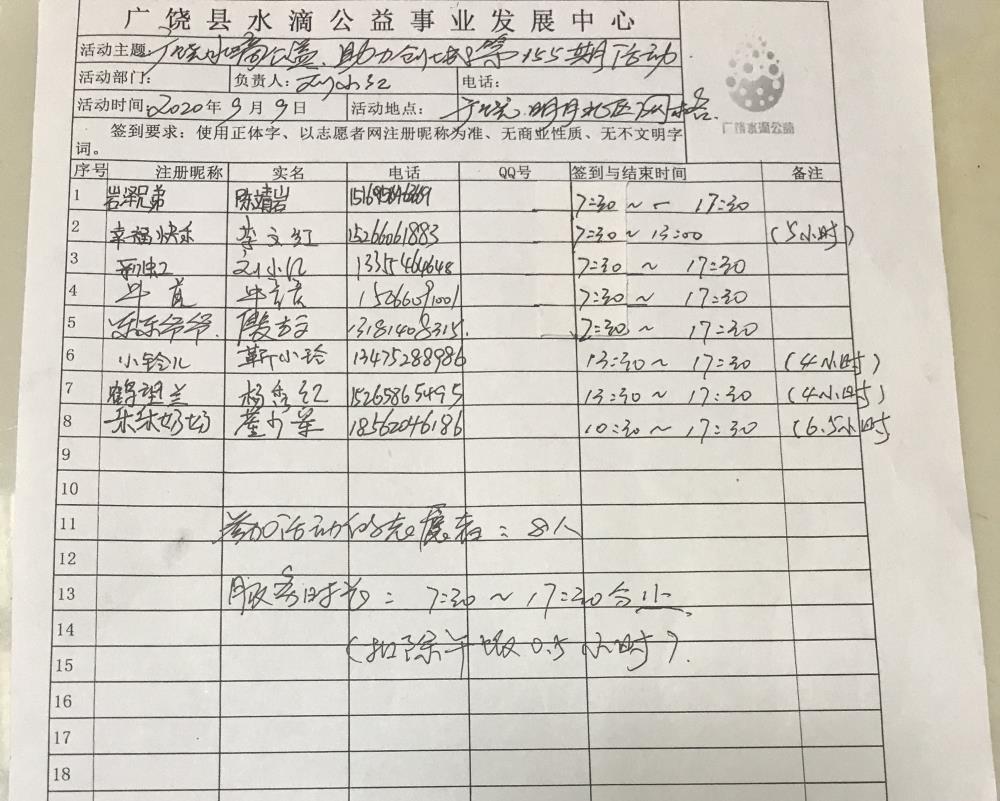 广饶县水滴公益事业发展中心
活动主题:广饶水滴公益、助力创城第155期活动
活动部门: 负责人:刘小红 电话:
活动时间:2020年9月9日 活动地点: 广饶.明月北区网格.
签到要求:使用正体字、以志愿者网注册昵称为准、无商业性质、无不文明字
词。
广饶水滴公益
序号 注册昵称 实名 电话 QQ号 签到与结束时间 备注
1 岩泽兄弟 陈靖岩 7:30 ~ 17:30
2 幸福快乐 李文红 15266061883 7:30~13:00 (5小时)
3 刘小红 13355464648 7:30 ~ 17:30
4 15266091001 7:30 ~ 17:30
5 乐乐爷爷. 13181408315. 7:30 ~ 17:30
6 小铃儿 靳小玲 13475288986 13:30~17:30 (4小时)
7 鹤望兰 杨秀红 15265865495 13:30~17:30 (4小时)
8 乐乐奶奶 董少军 18562046186 10:30~17:30 (6.5小时
9
10
11 参加活动的志愿者:8人
12
13 服务时长: 7:30~17:30合
14
15 (扣除午饭0.5小时).
16
17
18